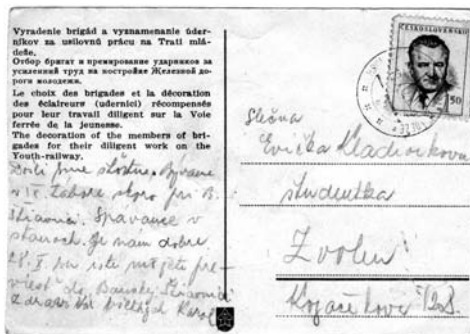 Vyradenie brigád a vyznamenanie úder-
níkov za usilovnú prácu na Trati mlá-
deže.
Отбор бригат и премирование ударников за
усиленний труд на постройке Железной до-
роги молодежи.
Le choix des brigades et la décoration
des éclaireurs (udernici) récompensés
pour leur travail diligent sur la Voie
ferrée de la jeunesse.
The decoration of the members of bri-
gades for their diligent work on the
Youth-railway.
Došli sme šťastne. Bývame
v IX. tábore skoro pri B.
Štiavnici. Spávame v
stanoch. Je nám dobre.
do Banskej Štiavnici
Karol
ČESKOSLOVENSKO
1,50
Slečna
Evička
študentka
Zvolen